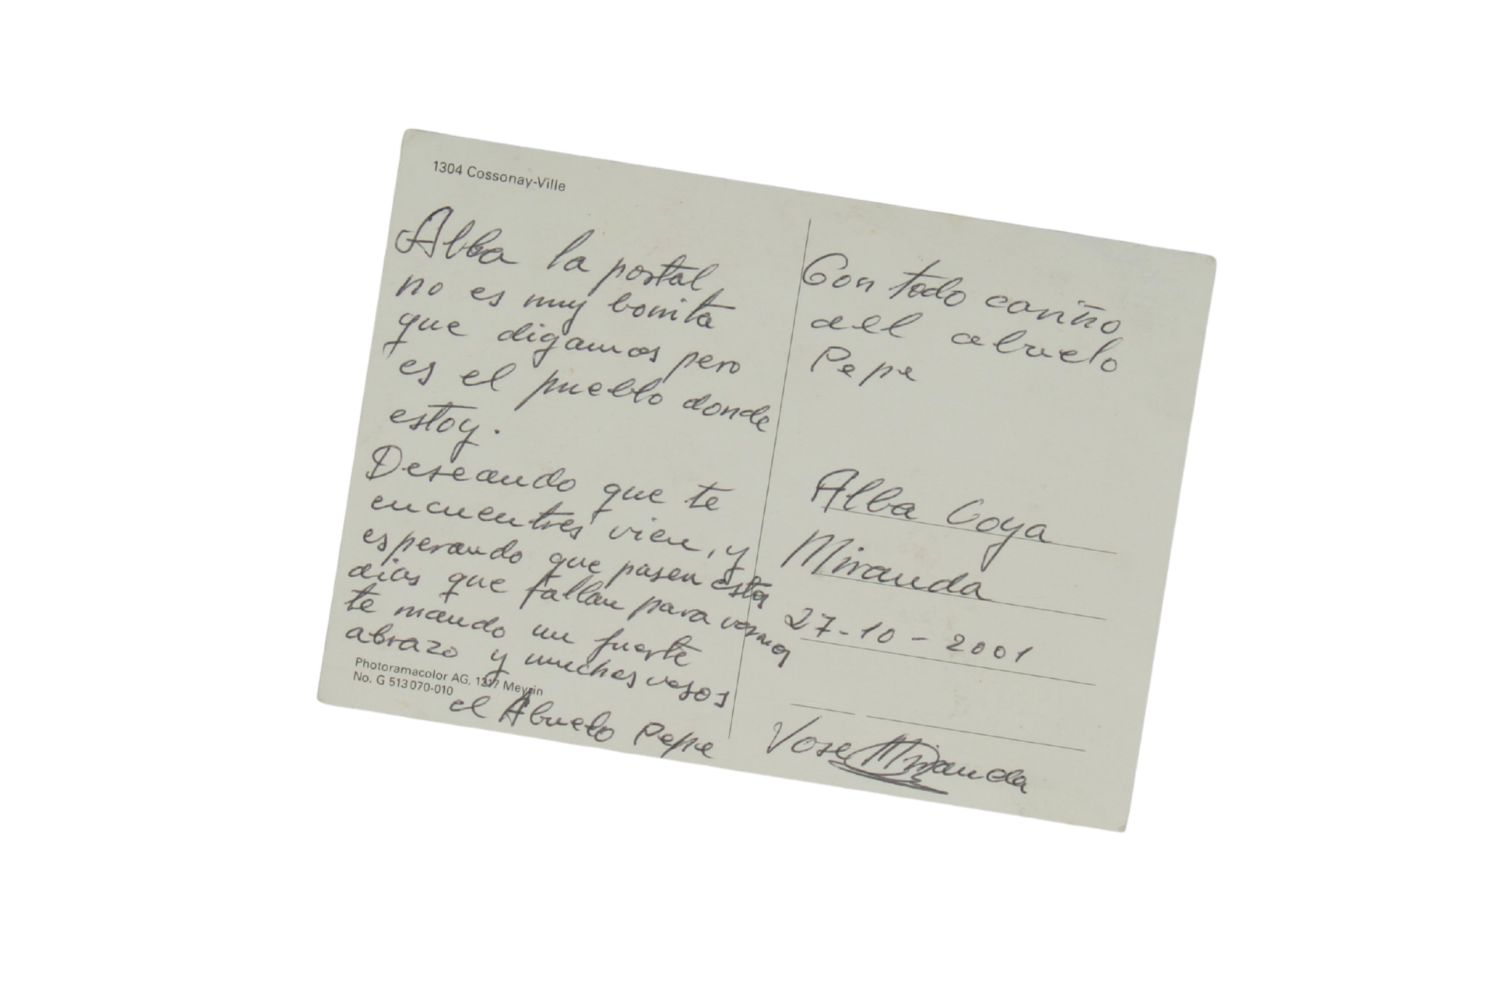 1304 Cossonay-Ville
Alba la postal
no es muy bonita
que digamos pero
es el pueblo donde
estoy.
Deseando que te
encuentres vien, y
esperando que pasen estos
dias que fallan para vernos
te mando un fuerte
abrazo y muchos vesos
Photoramacolor AG, 1217 Meyrin
No. G 513070-010
el Abuelo Pepe
Con todo cariño
del abuelo
Pepe
Alba Goya
Miranda
27-10-2001
Jose Miranda